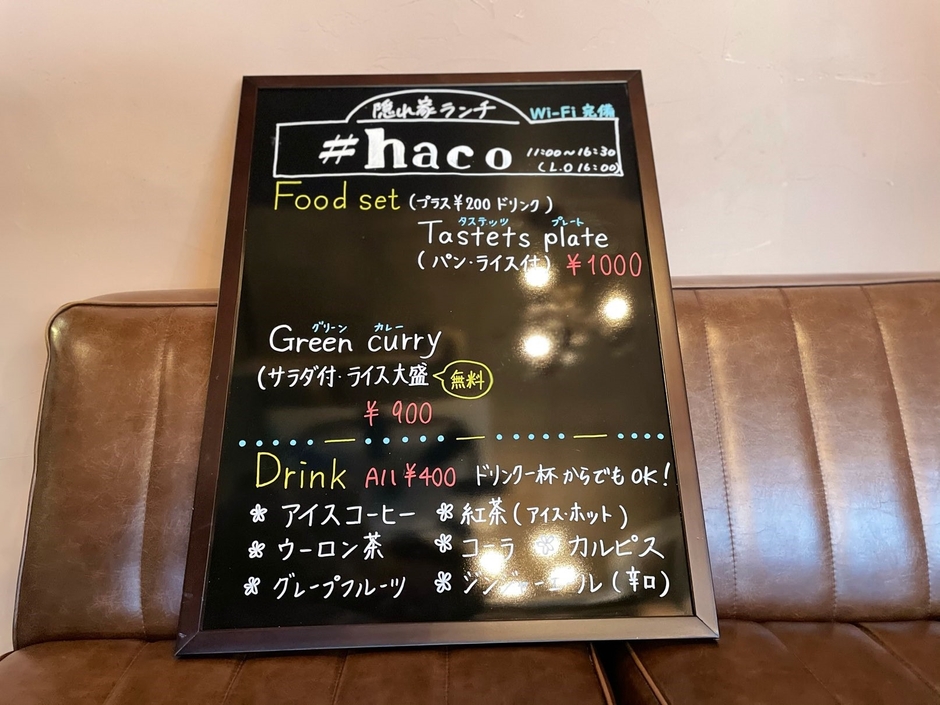 隠れ家ランチ
Wi-Fi 完備
#haco
11:00～16:30
(L.O 16:00)
Food set (プラス¥200 ドリンク)
タステッツ プレート
Tastets plate
(パン・ライス付) ¥1000
グリーン カレー
Green curry
(サラダ付・ライス大盛 無料
¥900
Drink All ¥400 ドリンク一杯からでもOK!
アイスコーヒー 紅茶(アイス・ホット)
ウーロン茶 コーラ カルピス
グレープフルーツ ジンジャーエール(辛口)